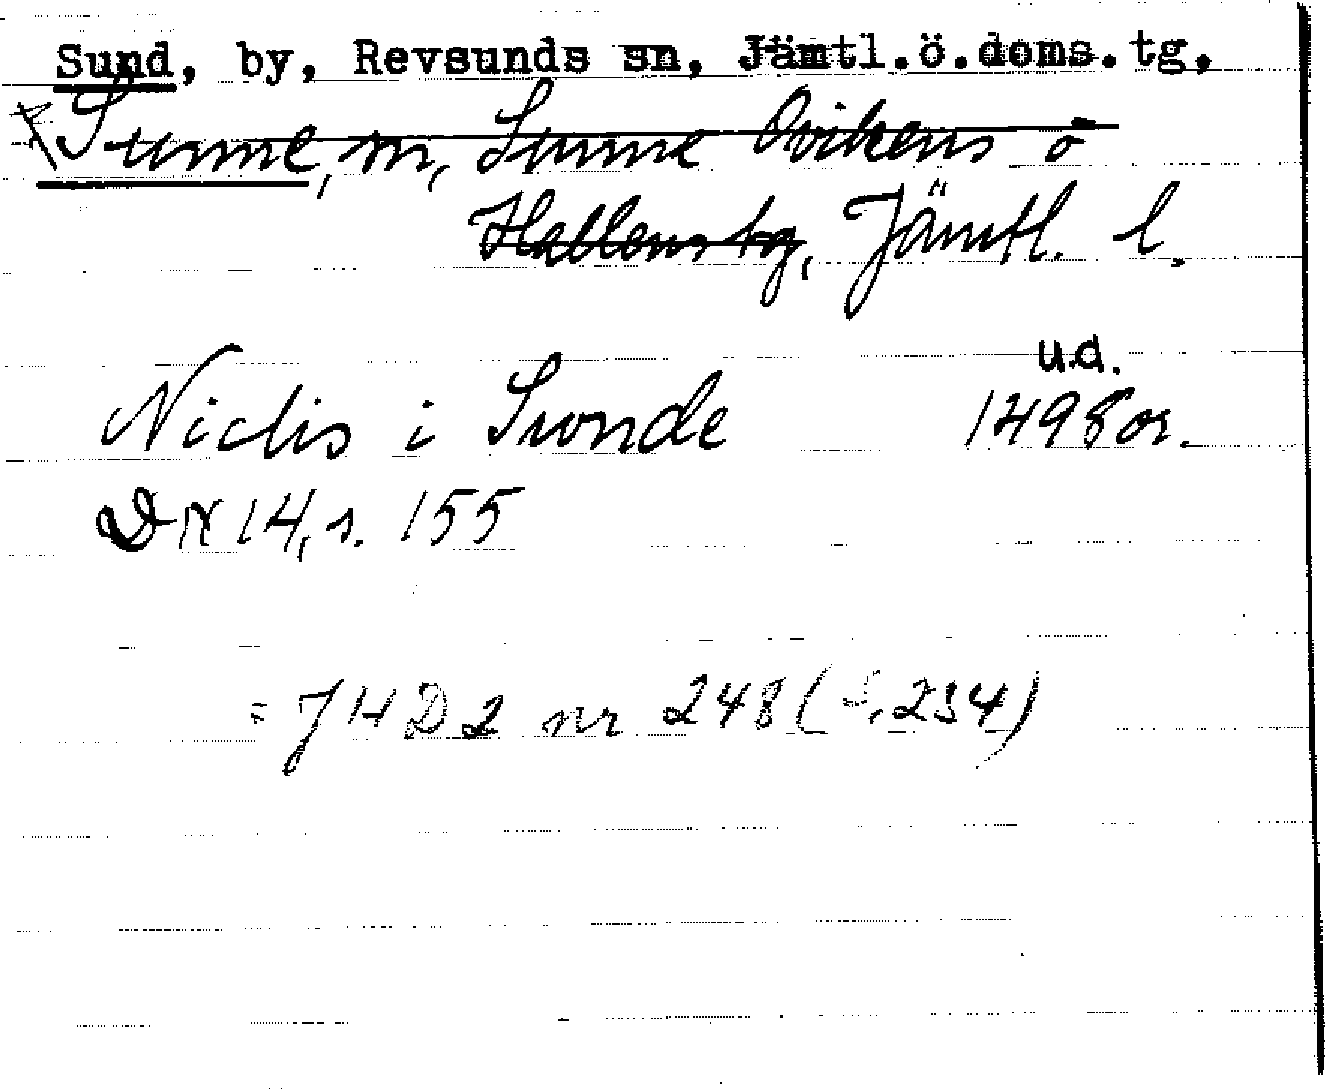 Sund, by, Revsunds sn, Jämtl.ö.doms.tg,
Sunne, sn, Sunne Ovikens o
Hallens tg, Jämtl. l.
u.d.
Niclis i Swnde 1498 or.
DN 14, s. 155
= JHD 2 nr 248 (s. 234)